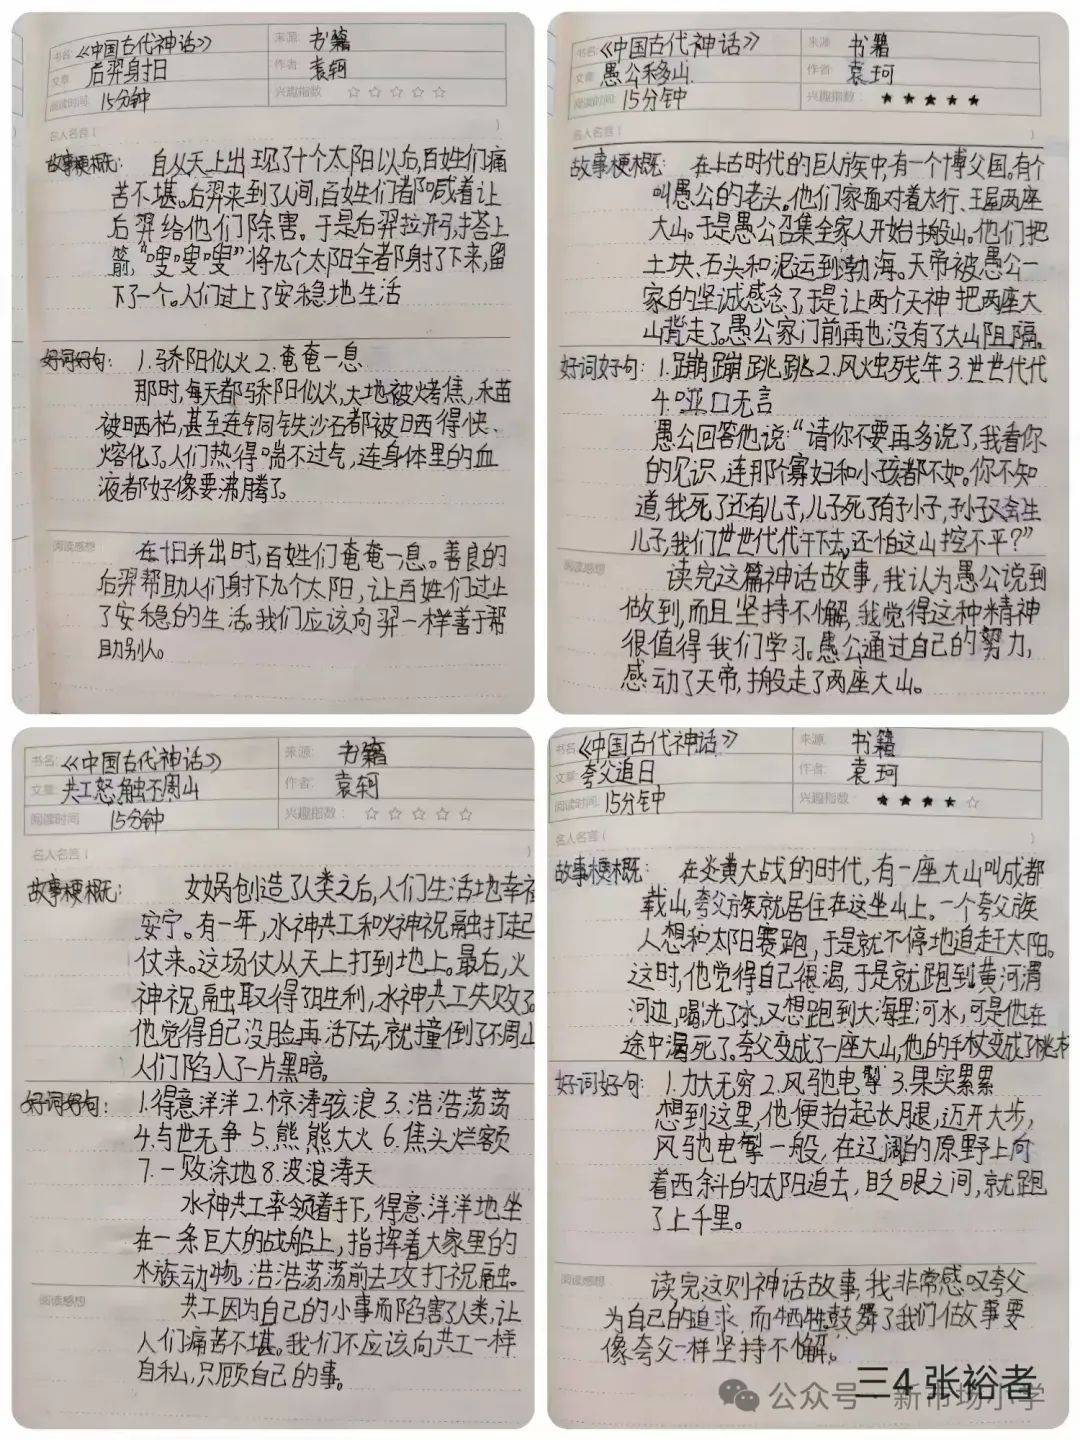 书名:《中国古代神话》 来源: 书籍
文章: 后羿射日 作者: 袁轲
阅读时间: 15分钟 兴趣指数: ☆☆☆☆☆
名人名言( )
故事梗概: 自从天上出现了十个太阳以后,百姓们痛
苦不堪。后羿来到了人间,百姓们都喊着让
后羿给他们除害。于是后羿拉开弓,搭上
箭,“嗖嗖嗖”将九个太阳全都射了下来,留
下了一个。人们过上了安稳地生活
好词好句: 1.骄阳似火2.奄奄一息
那时,每天都骄阳似火,大地被烤焦,禾苗
被晒枯,甚至连铜铁沙石都被晒得快
熔化了。人们热得喘不过气,连身体里的血
液都好像要沸腾了。
阅读感想
在十日并出时,百姓们奄奄一息。善良的
后羿帮助人们射下九个太阳,让百姓们过上
了安稳的生活。我们应该向羿一样善于帮
助别人。
书名:《中国古代神话》 来源 书籍
文章: 愚公移山 作者: 袁珂
阅读时间: 15分钟 兴趣指数: ★★★★★
名人名言( )
故事梗概: 在上古时代的巨人族中,有一个博父国。有个
叫愚公的老头。他们家面对着太行、王屋两座
大山。于是愚公召集全家人开始搬山。他们把
土块、石头和泥运到渤海。天帝被愚公一
家的坚诚感念了,于是让两个天神把两座大
山背走了。愚公家门前再也没有了大山阻隔。
好词好句: 1.蹦蹦跳跳2.风烛残年3.世世代代
4.哑口无言
愚公回答他说:“请你不要再多说了,我看你
的见识,连那个寡妇和小孩都不如。你不知
道,我死了还有儿子,儿子死了有孙子,孙子又会生
儿子,我们世世代代干下去,还怕这山挖不平?”
阅读感想
读完这篇神话故事,我认为愚公说到
做到,而且坚持不懈,我觉得这种精神
很值得我们学习。愚公通过自己的努力,
感动了天帝,搬走了两座大山。
书名:《中国古代神话》 来源: 书籍
文章: 共工怒触不周山 作者: 袁轲
阅读时间 15分钟 兴趣指数: ☆☆☆☆☆
名人名言( )
故事梗概: 女娲创造了人类之后,人们生活地幸福
安宁。有一年,水神共工和火神祝融打起
仗来。这场仗从天上打到地上。最后,火
神祝融取得了胜利,水神共工失败了
他觉得自己没脸再活下去,就撞倒了不周山
人们陷入了一片黑暗。
好词好句: 1.得意洋洋2.惊涛骇浪3.浩浩荡荡
4.与世无争5.熊熊大火6.焦头烂额
7.一败涂地8.波浪涛天
水神共工率领着手下,得意洋洋地坐
在一条巨大的战船上,指挥着大家里的
水族动物,浩浩荡荡前去攻打祝融。
阅读感想
共工因为自己的小事而陷害了人类,让
人们痛苦不堪。我们不应该向共工一样
自私,只顾自己的事。
书名:《中国古代神话》 来源: 书籍
文章: 夸父追日 作者: 袁珂
阅读时间: 15分钟 兴趣指数: ★★★★☆
名人名言( )
故事梗概: 在炎黄大战的时代,有一座大山叫成都
载山,夸父族就居住在这坐山上。一个夸父族
人想和太阳赛跑,于是就不停地追赶太阳。
这时,他觉得自己很渴,于是就跑到黄河渭
河边,喝光了水,又想跑到大海里河水,可是他在
途中渴死了。夸父变成了一座大山,他的手杖变成了桃林
好词好句: 1.力大无穷2.风驰电掣3.果实累累
想到这里,他便抬起长腿,迈开大步,
风驰电掣一般,在辽阔的原野上向
着西斜的太阳追去,眨眼之间,就跑
了上千里。
阅读感想
读完这则神话故事,我非常感叹夸父
为自己的追求而牺牲,鼓舞了我们做故事要
像夸父一样坚持不懈。
三4 张裕者
公众号·新市场小学